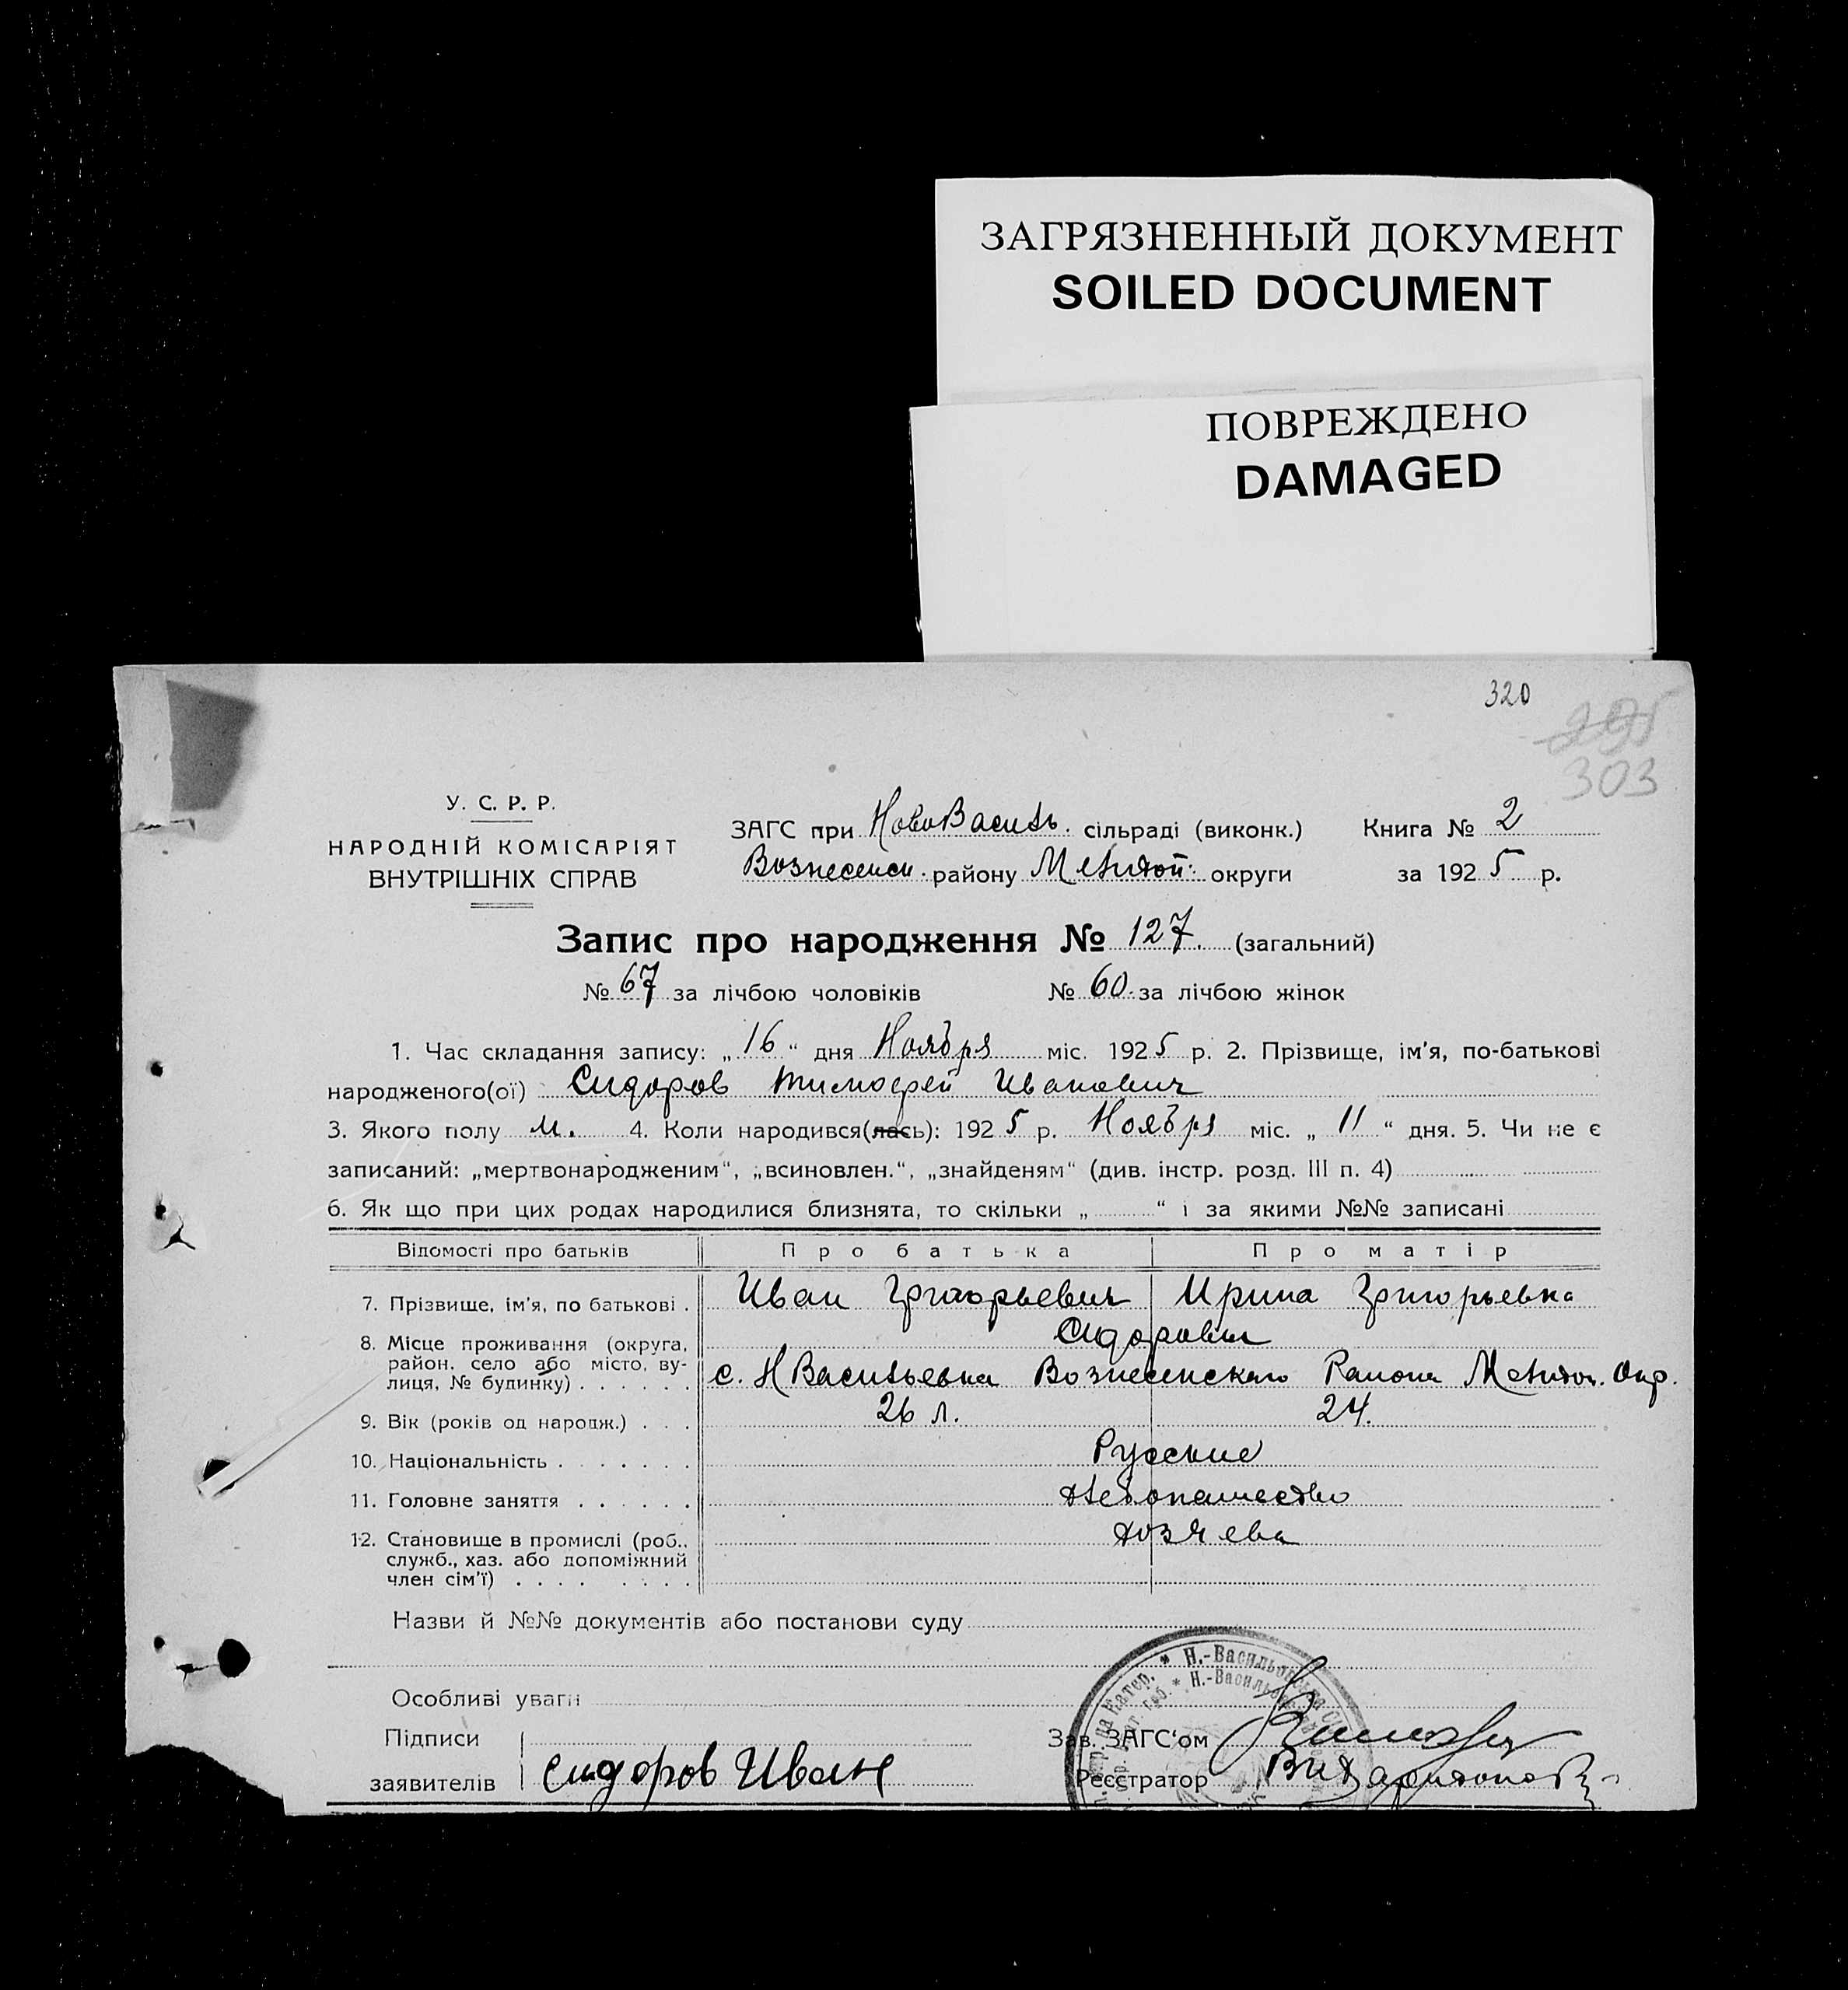 ЗАГРЯЗНЕННЫЙ ДОКУМЕНТ
SOILED DOCUMENT
ПОВРЕЖДЕНО
DAMAGED
320
303
У. С. Р. Р.
НАРОДНІЙ КОМІСАРІЯТ
ВНУТРІШНІХ СПРАВ
ЗАГС при НовоВасиль. сільраді (виконк.) Книга № 2
Вознесенск. району Мелитоп. округи за 1925 р.
Запис про народження № 127. (загальний)
№ 67 за лічбою чоловіків № 60. за лічбою жінок
1. Час складання запису: „16“ дня Ноября міс. 1925 р. 2. Прізвище, ім'я, по-батькові
народженого(ої) Сидоров Тимофей Иванович
3. Якого полу м. 4. Коли народився(лась): 1925 р. Ноября міс. „11“ дня. 5. Чи не є
записаний: „мертвонародженим“, „всиновлен.“, „знайденям“ (див. інстр. розд. III п. 4)
6. Як що при цих родах народилися близнята, то скільки „ “ і за якими №№ записані
Відомості про батьків Про батька Про матір
7. Прізвище, ім'я, по батькові . Иван Григорьевич Ирина Григорьевна
Сидоровы
8. Місце проживання (округа,
район, село або місто, ву-
лиця, № будинку) . . . . . . с. НВасильевка Вознесенского Района Мелитоп. Окр.
9. Вік (років од народж.) . . . 26 л. 24.
10. Національність . . . . . . . Русские
11. Головне заняття . . . . . . Хлебопашество
12. Становище в промислі (роб.,
служб., хаз. або допоміжний
член сім'ї) . . . . . . . . Хозяева
Назви й №№ документів або постанови суду
Особливі уваги
Підписи
заявителів Сидоров Иван
Зав. ЗАГС‘ом
Реєстратор
* Н.-Васильовська
* Н.-Васильов